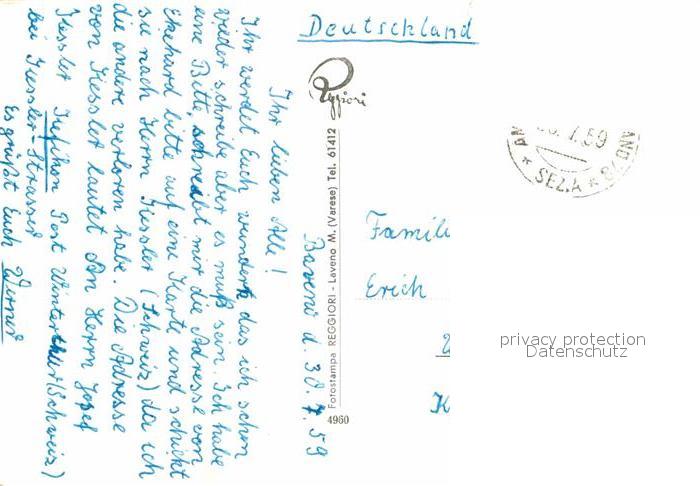 Deutschland
Baveno d. 30.7.59
Ihr lieben Alle!
Ihr werdet Euch wundern das ich schon
wieder schreibe aber es muß sein. Ich habe
eine Bitte, schreibt mir die Adresse von
Ekehard bitte auf eine Karte und schickt
sie nach Herrn Kiessler (Schweiz) da ich
die andere verloren habe. Die Adresse
von Kiessler lautet An Herrn Josef
Kiessler Post Winterthur (Schweiz)
bei Strasser
Es grüßt Euch Werner
Reggiori
Fotostampa REGGIORI - Laveno M. (Varese) Tel. 61412
4960
Famili
Erich
K
7.59
* SEZ.A *
privacy protection
Datenschutz